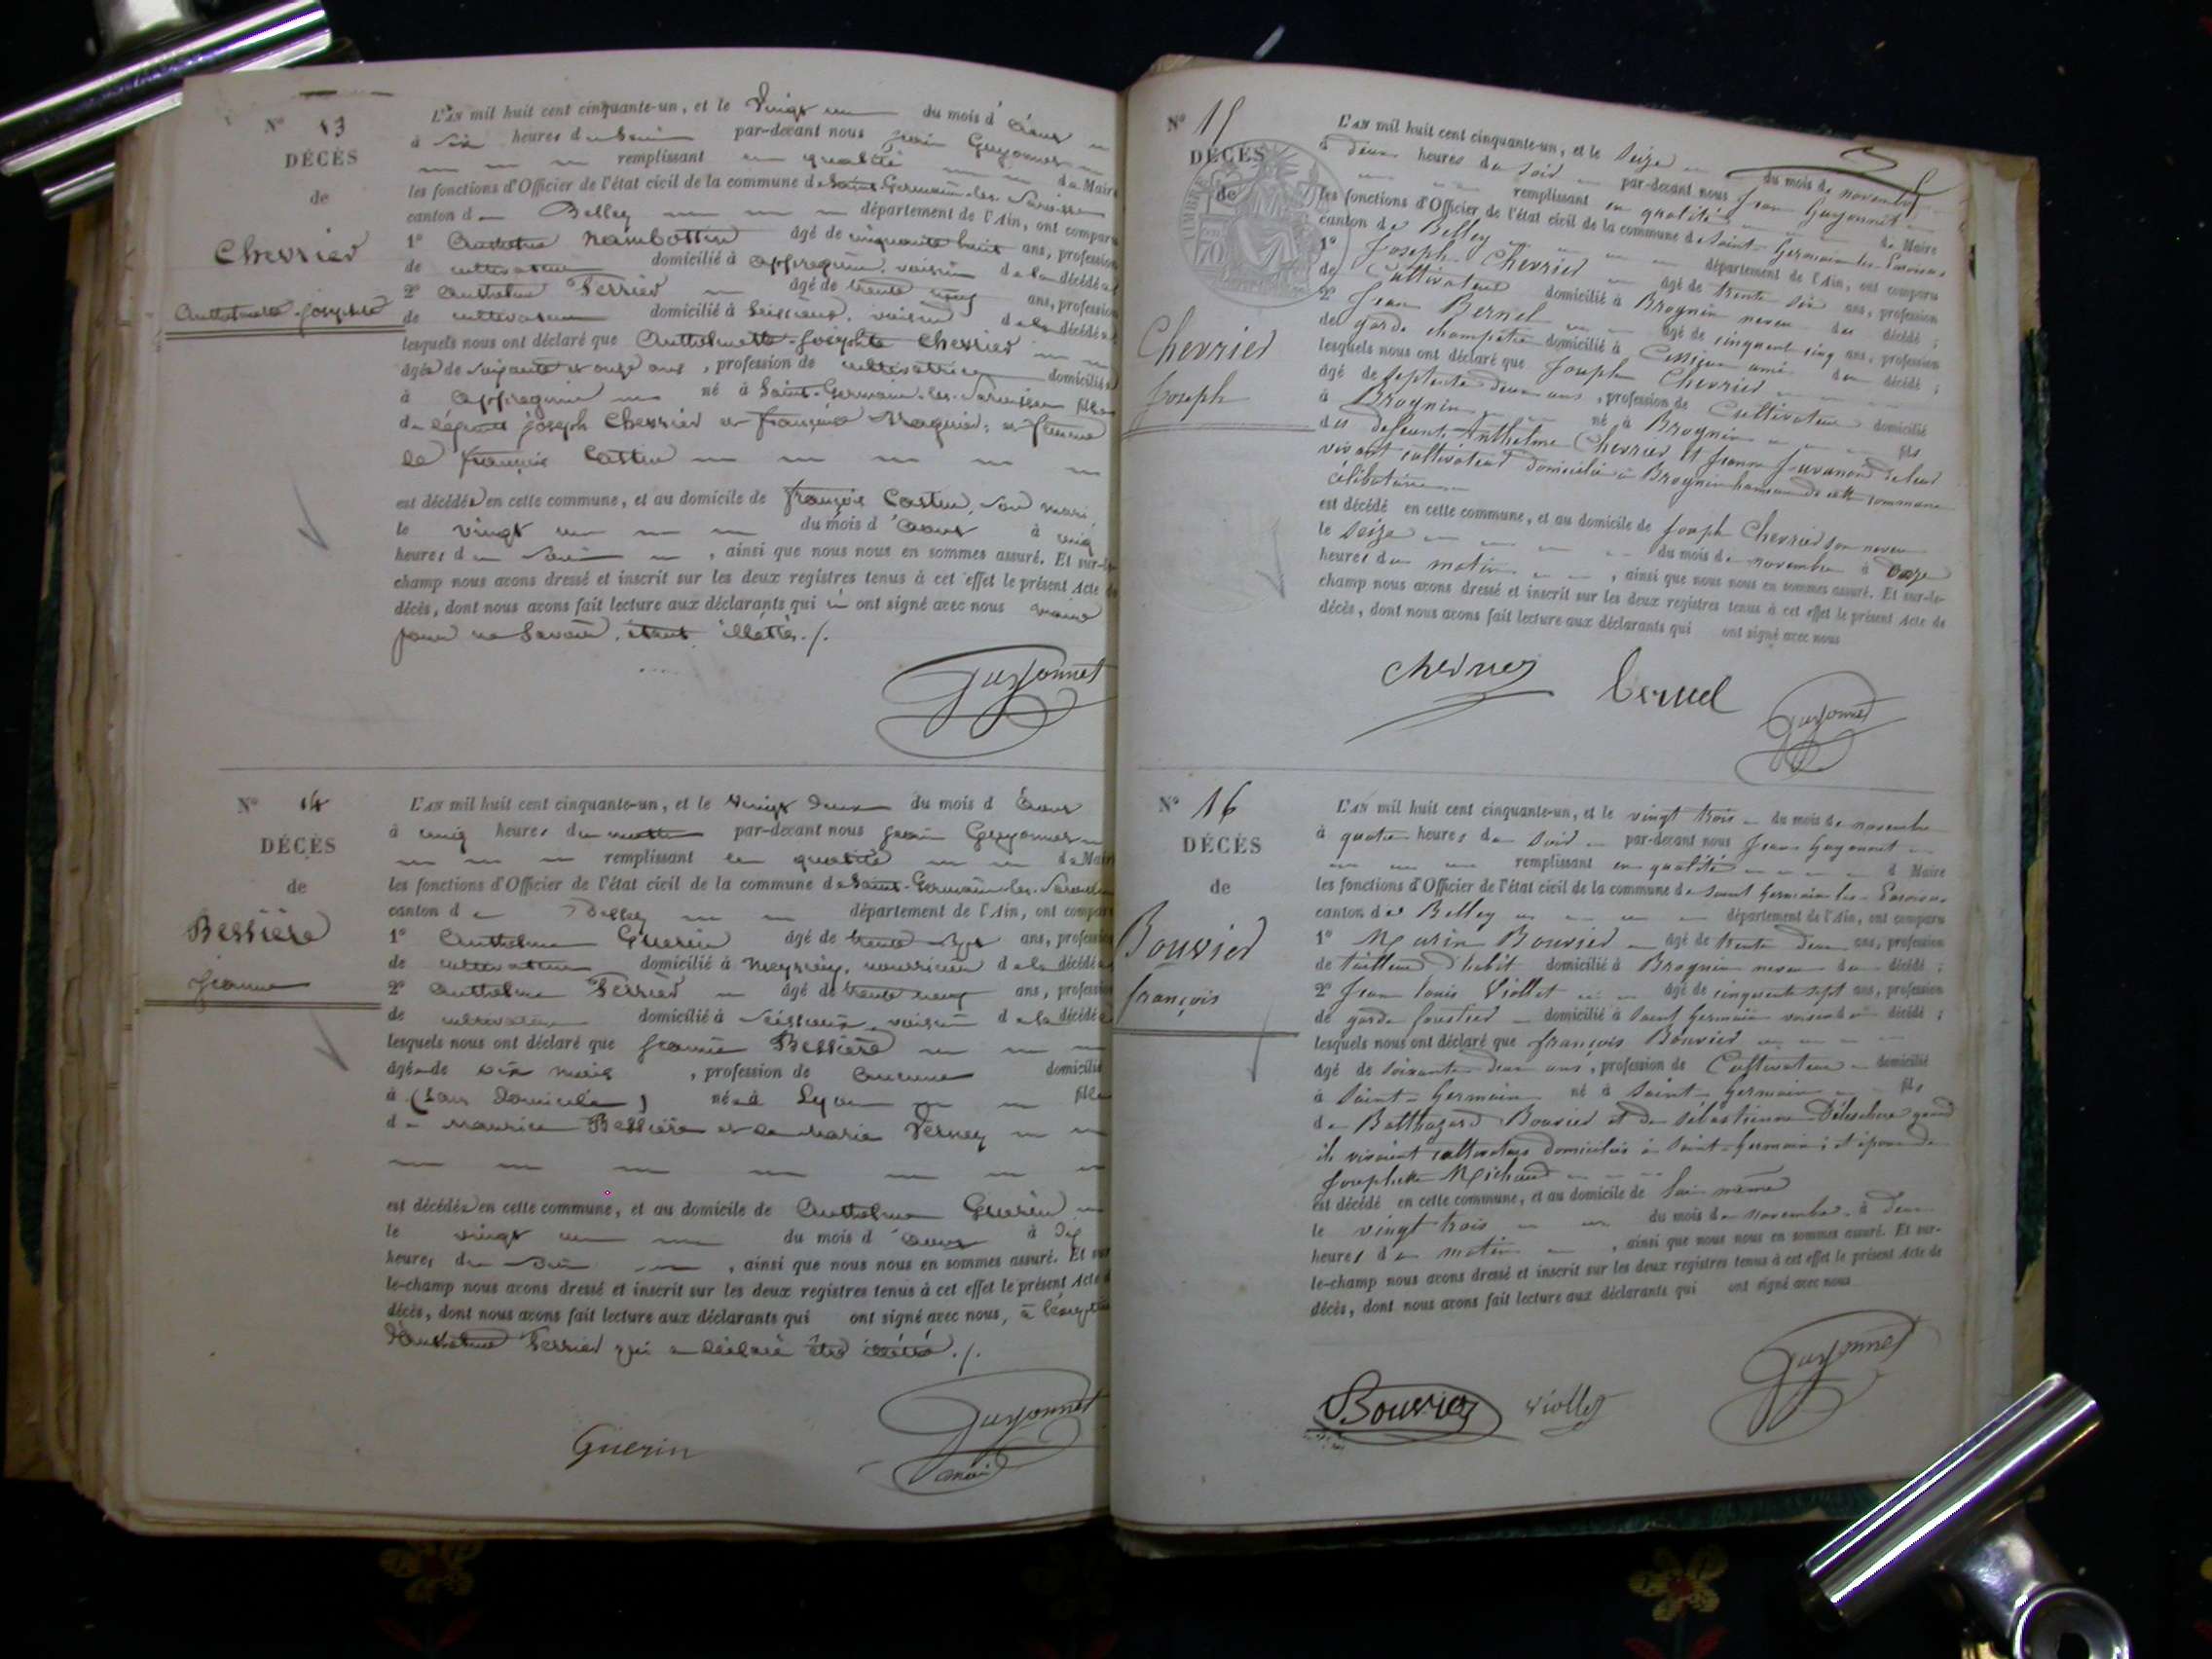 N° 13
DÉCÈS
de
Chevrier
Anthelmette-Josephte
L'AN mil huit cent cinquante-un, et le vingt un du mois d'aout
à six heures du soir par-devant nous Jean Guyonnet
remplissant en qualité de Maire
les fonctions d'Officier de l'état civil de la commune de Saint-Germain-les-Paroisses
canton de Belley département de l'Ain, ont comparu
1° Anthelme Nambottin âgé de cinquante huit ans, profession
de cultivateur domicilié à Appregnin, voisin de la décédée
2° Anthelme Ferrier âgé de trente neuf ans, profession
de cultivateur domicilié à Seissieux, voisin de la décédée
lesquels nous ont déclaré que Anthelmette-Josephte Chevrier
âgée de soixante et onze ans, profession de cultivatrice domiciliée
à Appregnin né à Saint-Germain-les-Paroisses fille
de défunts Joseph Chevrier et Françoise et femme
de François Castin
est décédée en cette commune, et au domicile de François Castin, son mari,
le vingt un du mois d'aout à cinq
heures du soir, ainsi que nous nous en sommes assuré. Et sur-le-
champ nous avons dressé et inscrit sur les deux registres tenus à cet effet le présent Acte de
décès, dont nous avons fait lecture aux déclarants qui n'ont signé avec nous maire
pour ne savoir, étant illétrés./.
Guyonnet
N° 14
DÉCÈS
de
Bessière
Jeanne
L'AN mil huit cent cinquante-un, et le vingt deux du mois d'aout
à cinq heures du matin par-devant nous Jean Guyonnet
remplissant en qualité de Maire
les fonctions d'Officier de l'état civil de la commune de Saint-Germain-les-Paroisses
canton de Belley département de l'Ain, ont comparu
1° Anthelme Guerin âgé de trente sept ans, profession
de cultivateur domicilié à Meyrieu, nourricier de la décédée
2° Anthelme Ferrier âgé de trente neuf ans, profession
de cultivateur domicilié à Seissieux, voisin de la décédée
lesquels nous ont déclaré que Jeanne Bessière
âgée de six mois, profession de aucune domicilié
à (sans domicile) née à Lyon fille
de Maurice Bessière et de Marie Verney
est décédée en cette commune, et au domicile de Anthelme Guerin
le vingt un du mois d'aout à dix
heures du soir, ainsi que nous nous en sommes assuré. Et sur
le-champ nous avons dressé et inscrit sur les deux registres tenus à cet effet le présent Acte de
décès, dont nous avons fait lecture aux déclarants qui ont signé avec nous, à l'exception
d'Anthelme Ferrier qui a déclaré être illétré./.
Guerin
Guyonnet
maire
N° 15
DÉCÈS
de
Chevrier
Joseph
L'AN mil huit cent cinquante-un, et le seize du mois de novembre
à deux heures du soir par-devant nous Jean Guyonnet
remplissant en qualité de Maire
les fonctions d'Officier de l'état civil de la commune de Saint-Germain-les-Paroisses
canton de Belley département de l'Ain, ont comparu
1° Joseph Chevrier âgé de trente six ans, profession
de Cultivateur domicilié à Brognin neveu du décédé;
2° Jean Bernel âgé de cinquante cinq ans, profession
de garde champetre domicilié à ami du décédé;
lesquels nous ont déclaré que Joseph Chevrier
âgé de septente deux ans, profession de Cultivateur domicilié
à Brognin né à Brognin fils
des defeunts Anthelme Chevrier et Jeanne Juvanon de leur
vivant cultivateur domicilié à Brognin hameau de cette commune
célibataire
est décédé en cette commune, et au domicile de Joseph Chevrier son neveu
le seize du mois de novembre à onze
heures du matin, ainsi que nous nous en sommes assuré. Et sur-le-
champ nous avons dressé et inscrit sur les deux registres tenus à cet effet le présent Acte de
décès, dont nous avons fait lecture aux déclarants qui ont signé avec nous
Chevrier Bernel
Guyonnet
N° 16
DÉCÈS
de
Bouvier
François
L'AN mil huit cent cinquante-un, et le vingt trois du mois de novembre
à quatre heures du soir par-devant nous Jean Guyonnet
remplissant en qualité d Maire
les fonctions d'Officier de l'état civil de la commune de Saint Germain les Paroisses
canton de Belley département de l'Ain, ont comparu
1° Marin Bouvier âgé de trente deux ans, profession
de tailleur d'habit domicilié à Brognin neveu du décédé;
2° Jean Louis Viollet âgé de cinquante sept ans, profession
de garde forestier domicilié à Saint Germain voisin du décédé;
lesquels nous ont déclaré que François Bouvier
âgé de soixante deux ans, profession de Cultivateur domicilié
à Saint-Germain né à Saint-Germain fils
de Balthazard Bouvier et de Sébastienne quand
ils vivaient cultivateurs domiciliés à Saint-Germain; et époux de
Josephte Michaud
est décédé en cette commune, et au domicile de lui même
le vingt trois du mois de novembre à deux
heures du matin, ainsi que nous nous en sommes assuré. Et sur-
le-champ nous avons dressé et inscrit sur les deux registres tenus à cet effet le présent Acte de
décès, dont nous avons fait lecture aux déclarants qui ont signé avec nous
Bouvier Viollet
Guyonnet